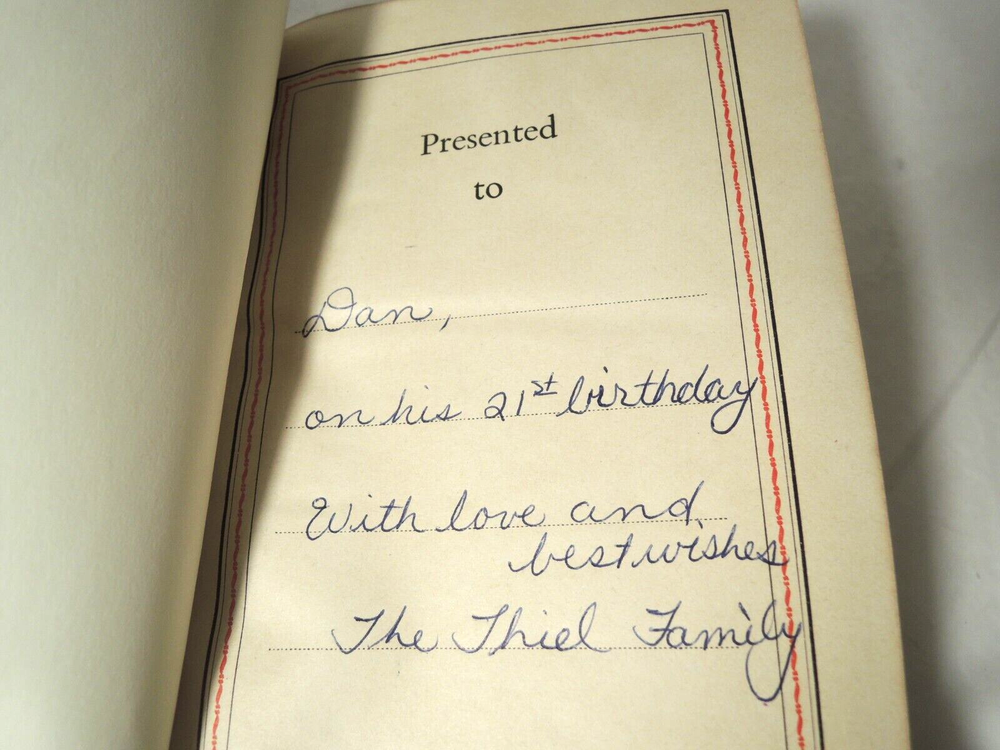 Presented
to
Dan,
on his 21st birthday
With love and
best wishes
The Thiel Family